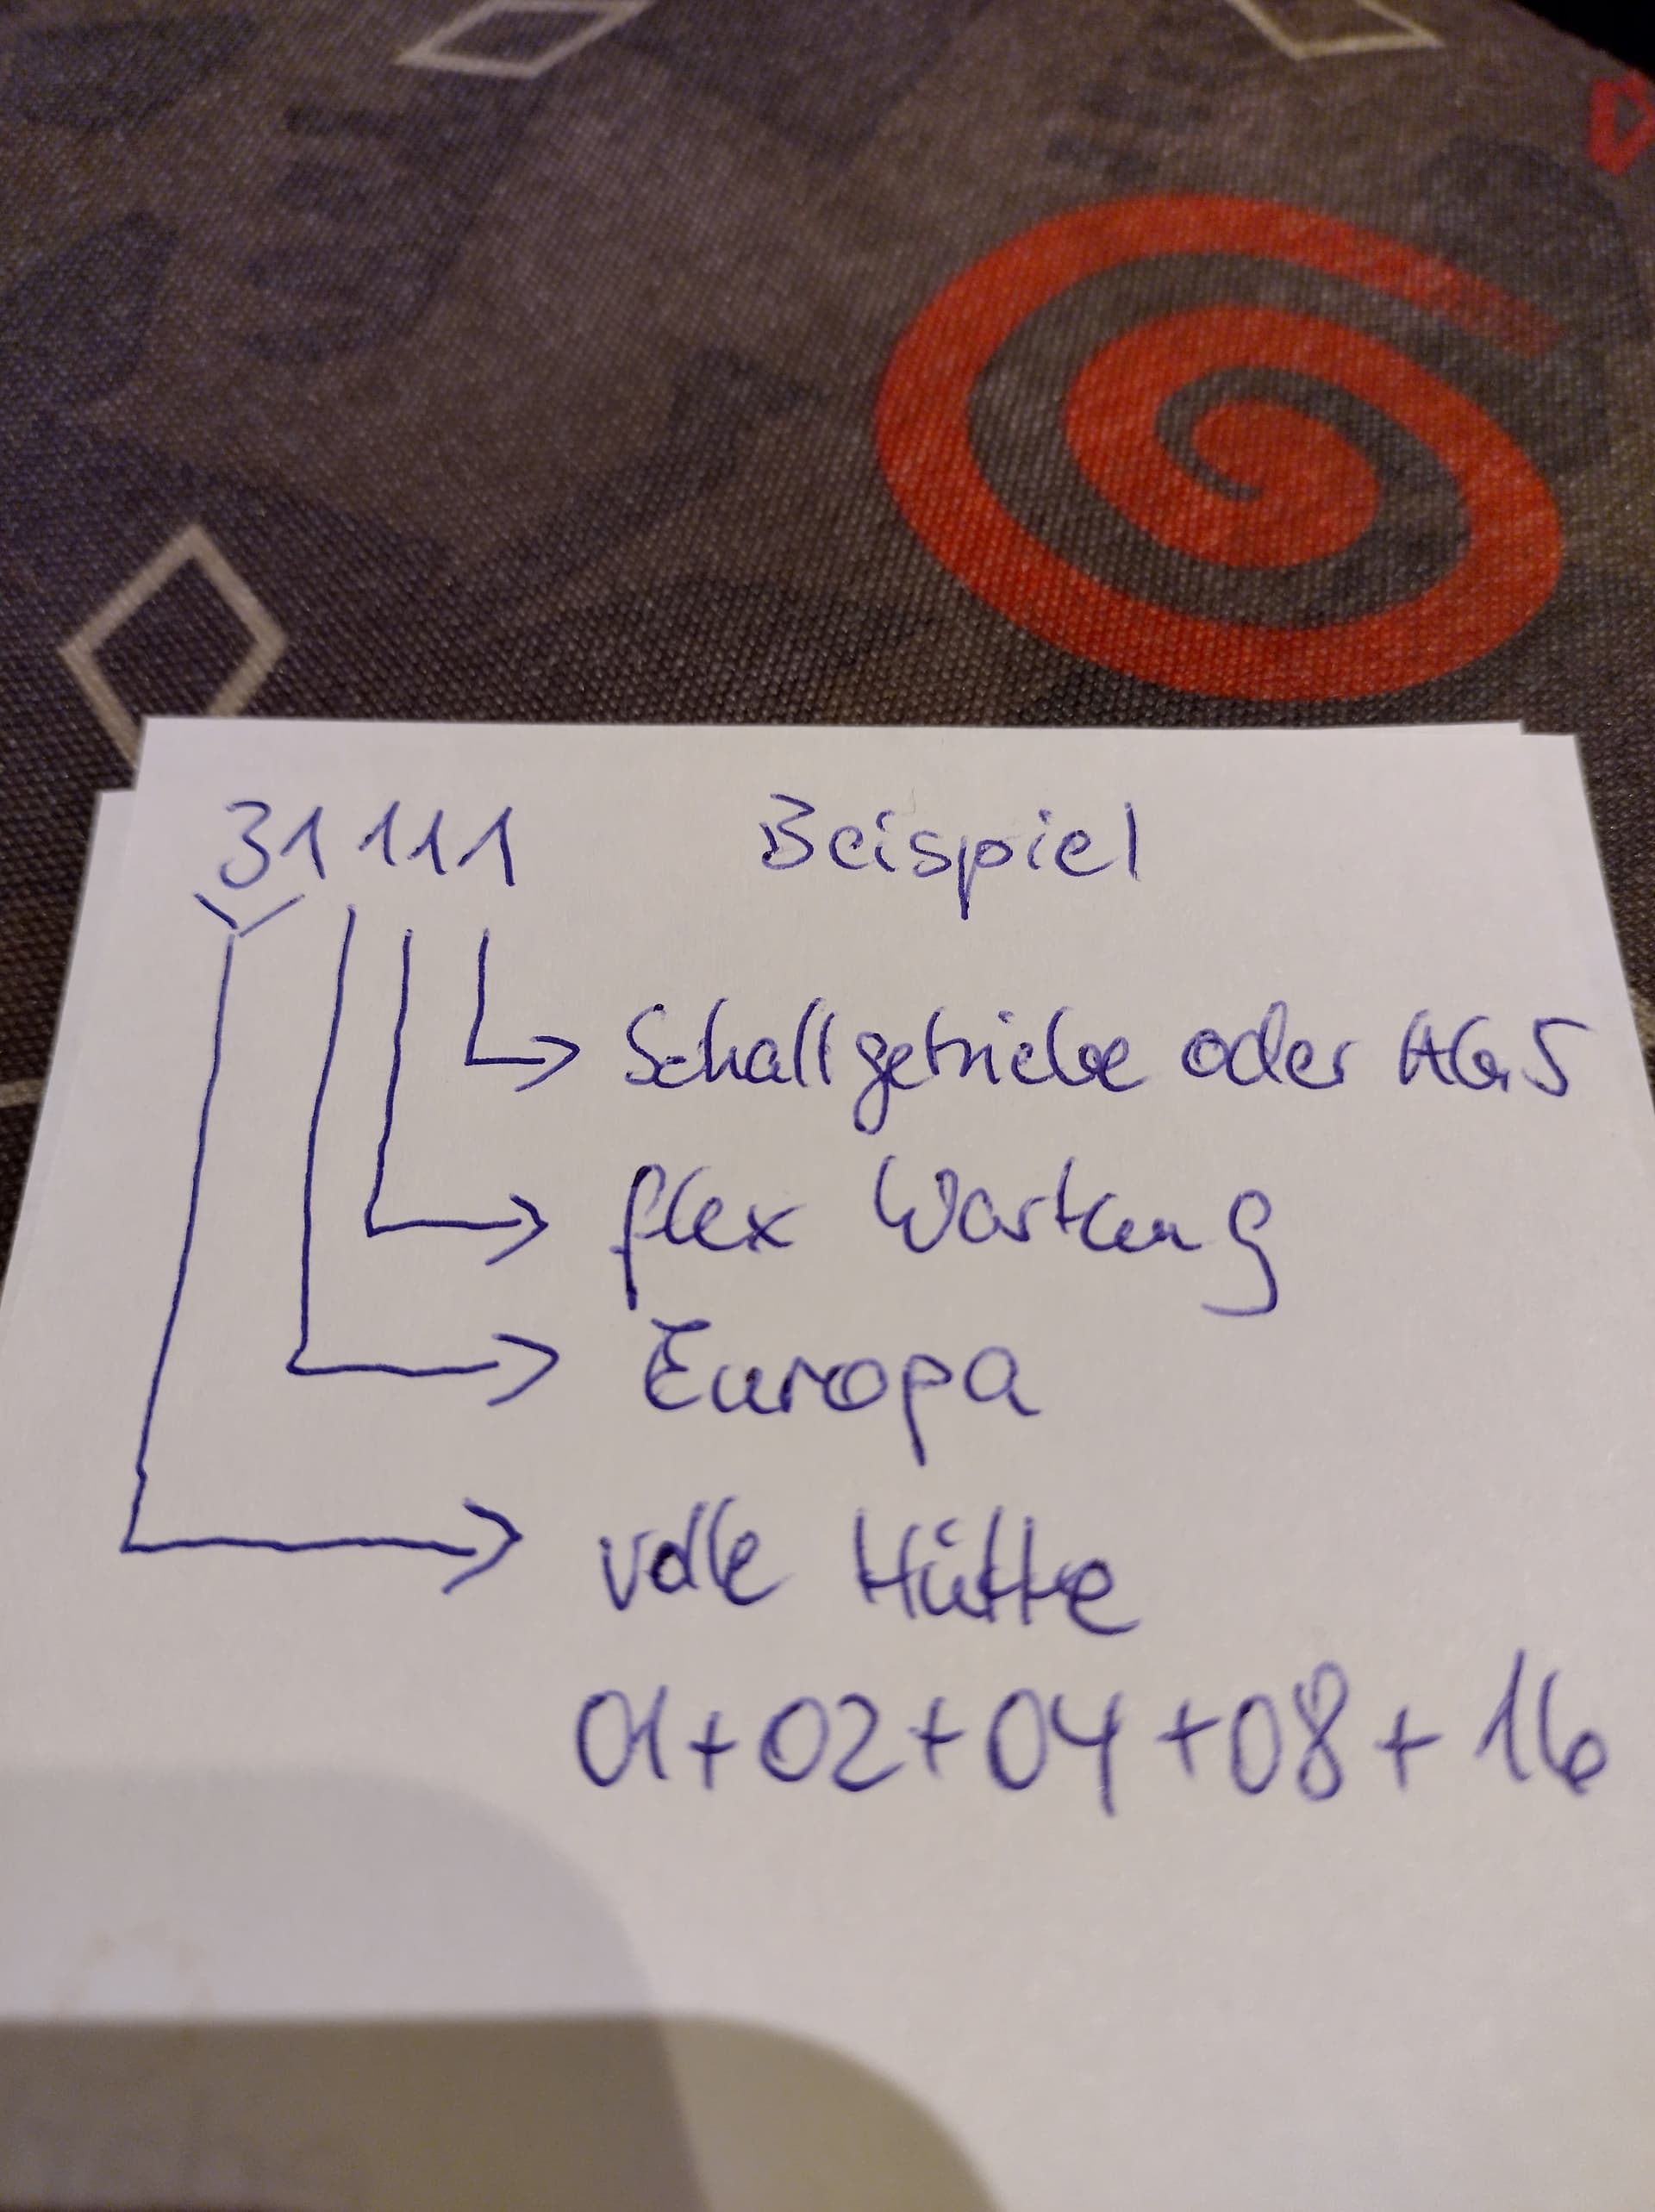 31111 Beispiel
Schaltgetriebe oder AG5
flex Wartung
Europa
volle Hütte
01+02+04+08+16